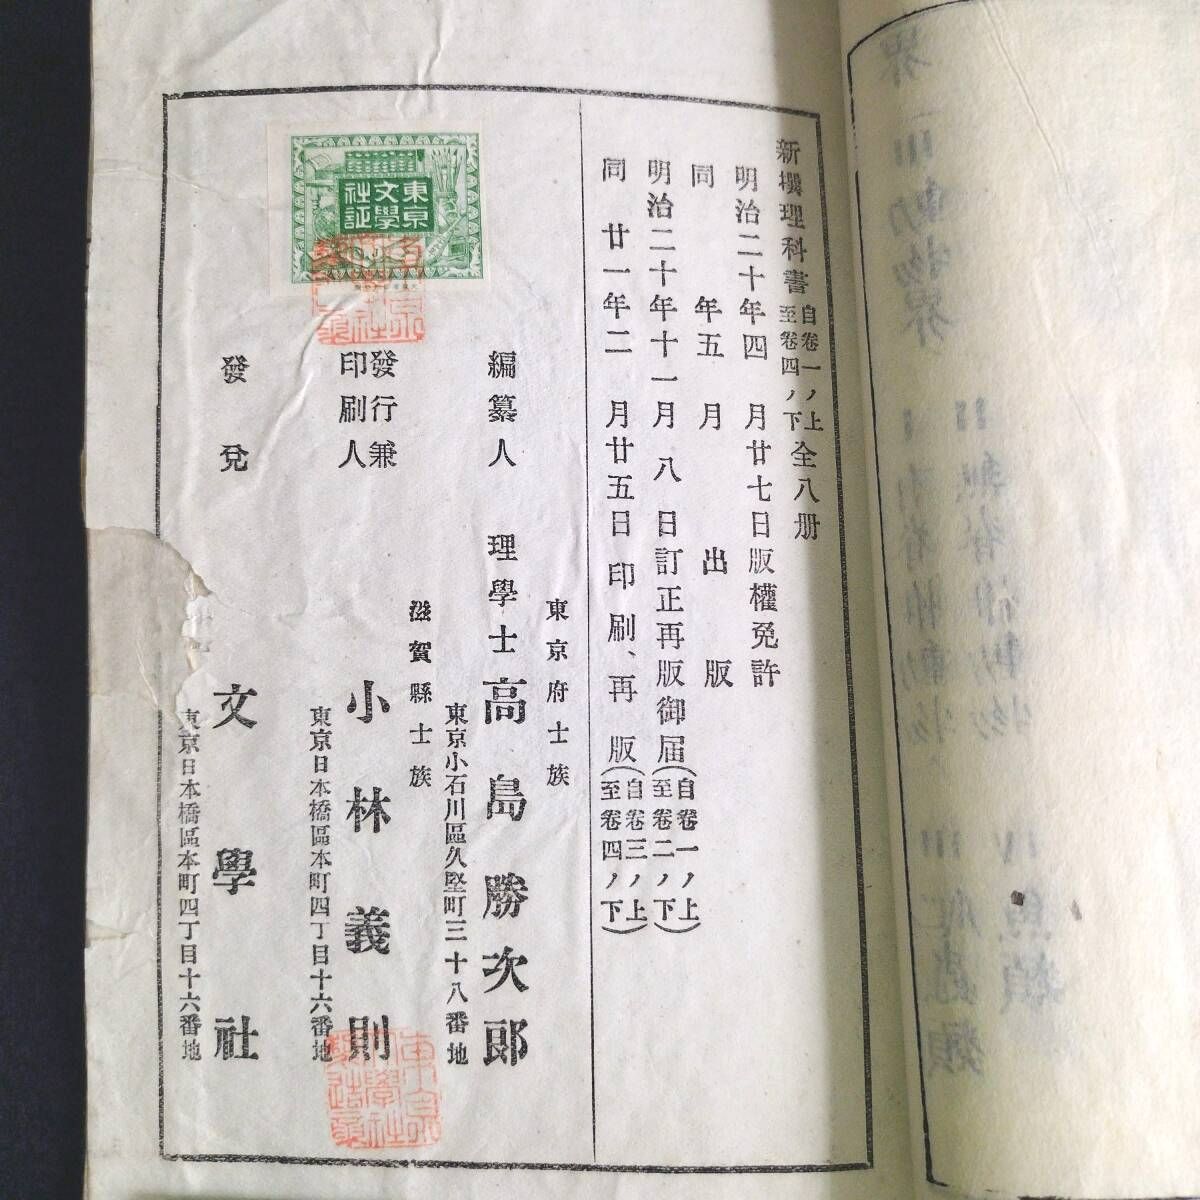 新撰理科書自卷一ノ上至卷四ノ下全八册
明治二十年四月廿七日版權免許
同年五月出版
明治二十年十一月八日訂正再版御届(自卷一ノ上至卷二ノ下)
同廿一年二月廿五日印刷、再版(自卷三ノ上至卷四ノ下)
東京府士族
編纂人 理學士高島勝次郎
東京小石川區久堅町三十八番地
滋賀縣士族
發行兼印刷人 小林義則
東京日本橋區本町四丁目十六番地
發兌 文學社
東京日本橋區本町四丁目十六番地
東京
文學
社証